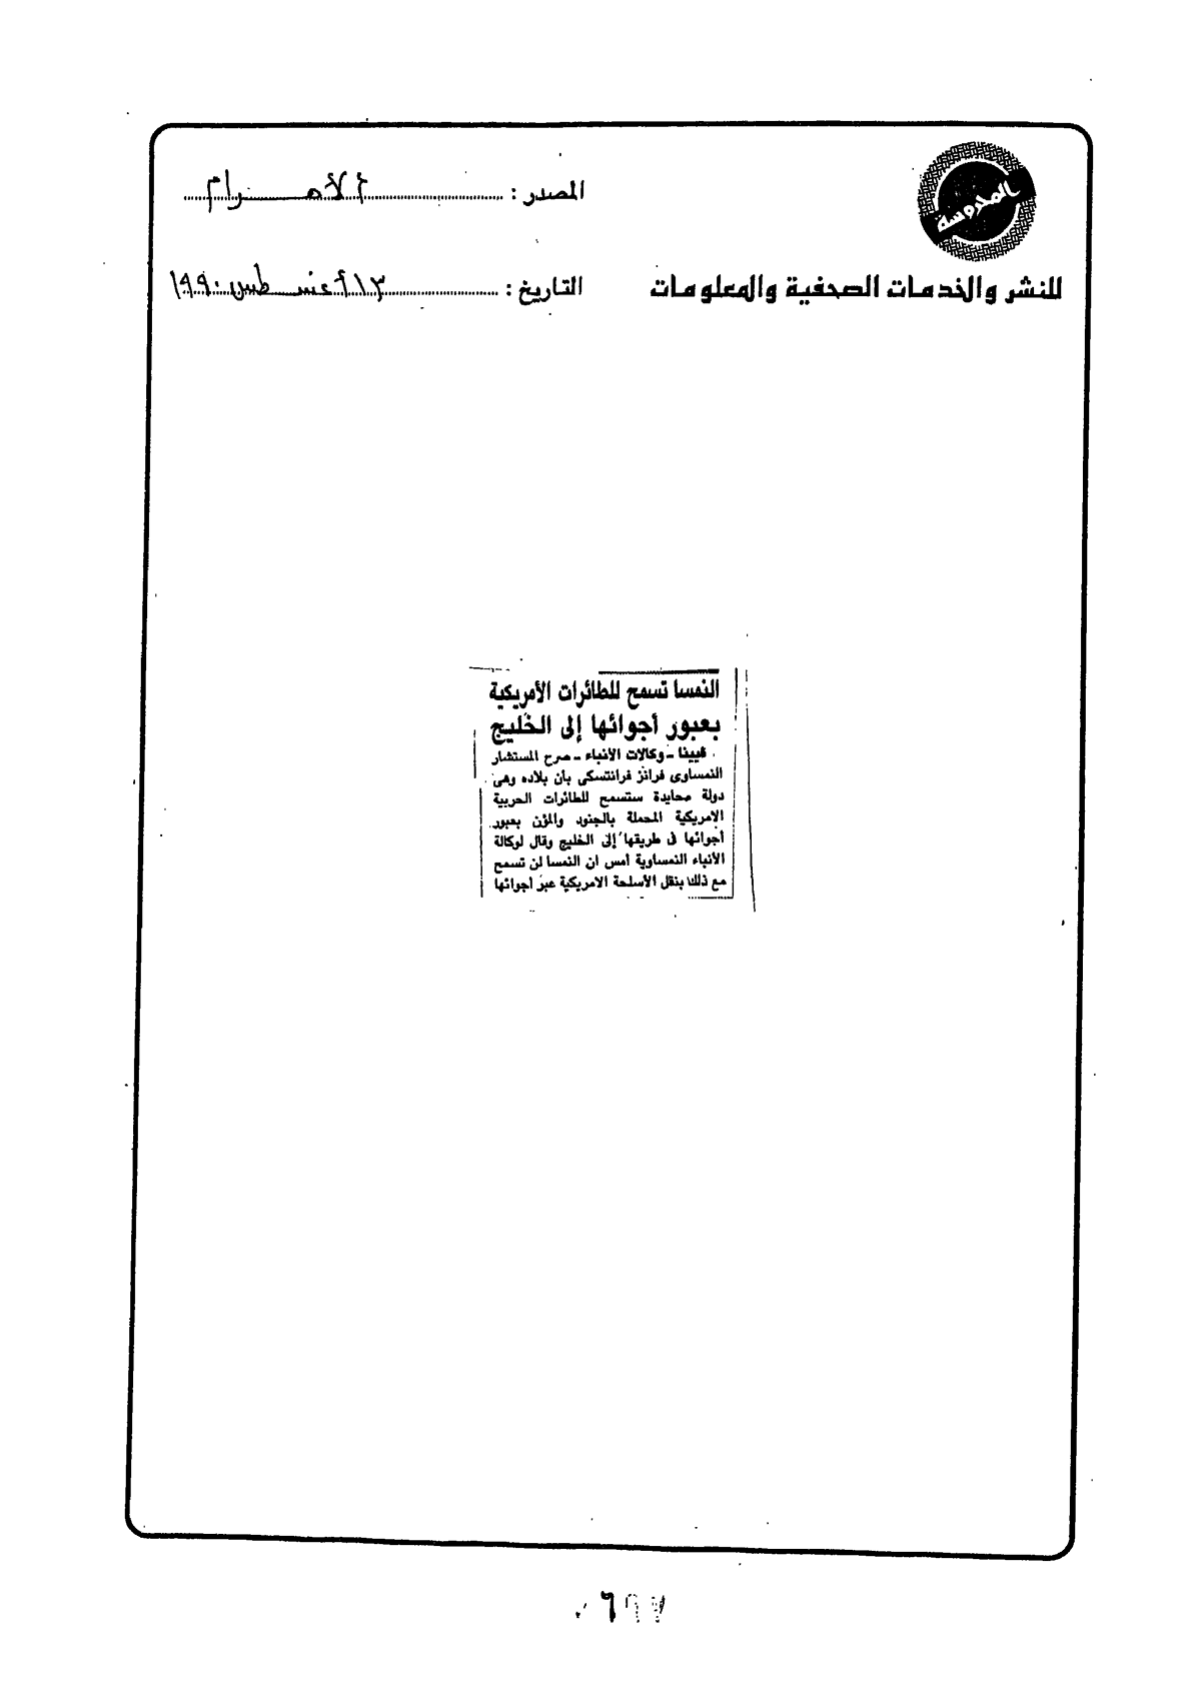 المحروسة
للنشر والخدمات الصحفية والمعلومات
المصدر : الأهـــرام
التاريخ : ١٣ أغسطس ١٩٩٠
النمسا تسمح للطائرات الأمريكية
بعبور أجوائها إلى الخليج
فيينا - وكالات الأنباء - صرح المستشار
النمساوى فرانز فرانتسكى بأن بلاده وهى
دولة محايدة ستسمح للطائرات الحربية
الامريكية المحملة بالجنود والمؤن بعبور
أجوائها فى طريقها إلى الخليج وقال لوكالة
الأنباء النمساوية أمس ان النمسا لن تسمح
مع ذلك بنقل الأسلحة الامريكية عبر أجوائها